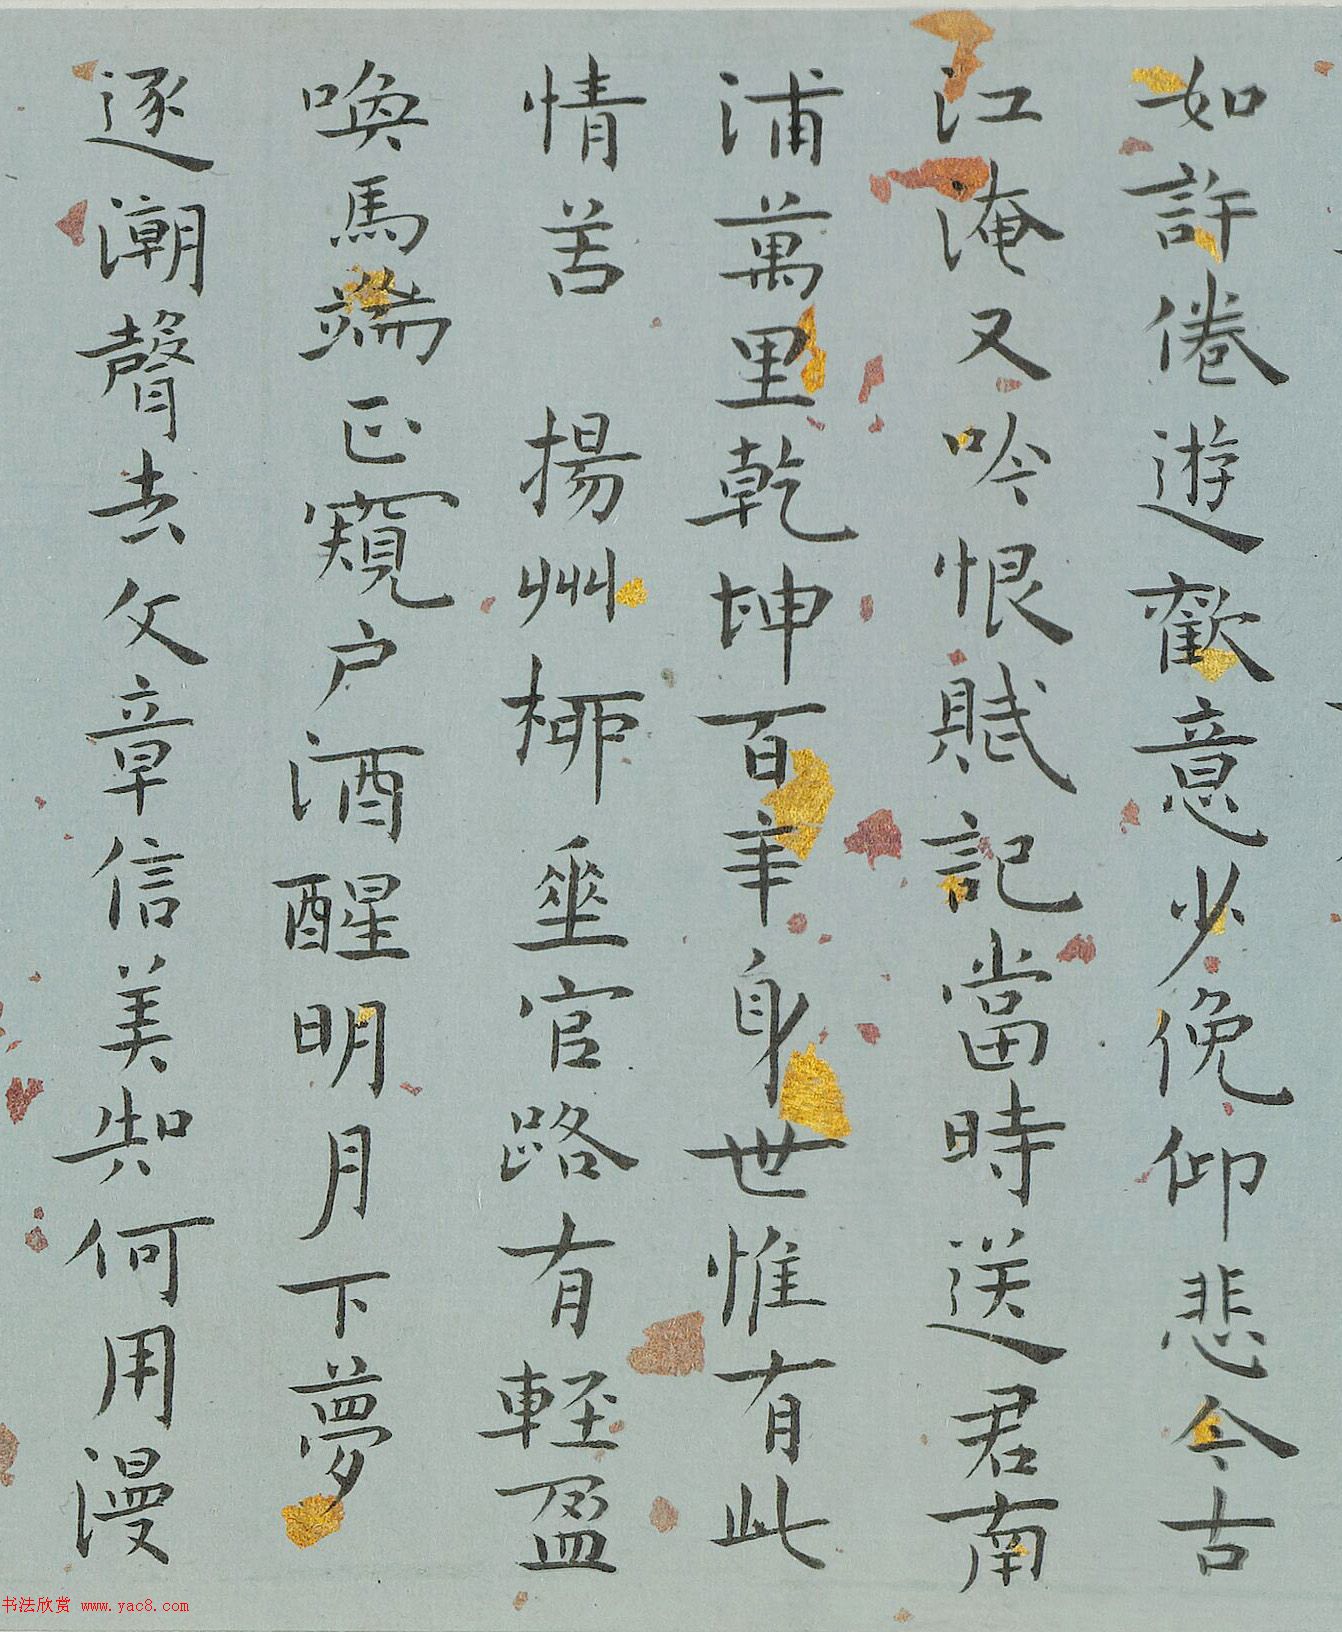 如許倦遊歡意少俛仰悲今古
江淹又吟恨賦記當時送君南
浦萬里乾坤百年身世惟有此
情苦　揚州栁垂官路有輕盈
喚馬端正窺户酒醒明月下夢
逐潮聲去文章信美知何用漫
书法欣赏 www.yac8.com